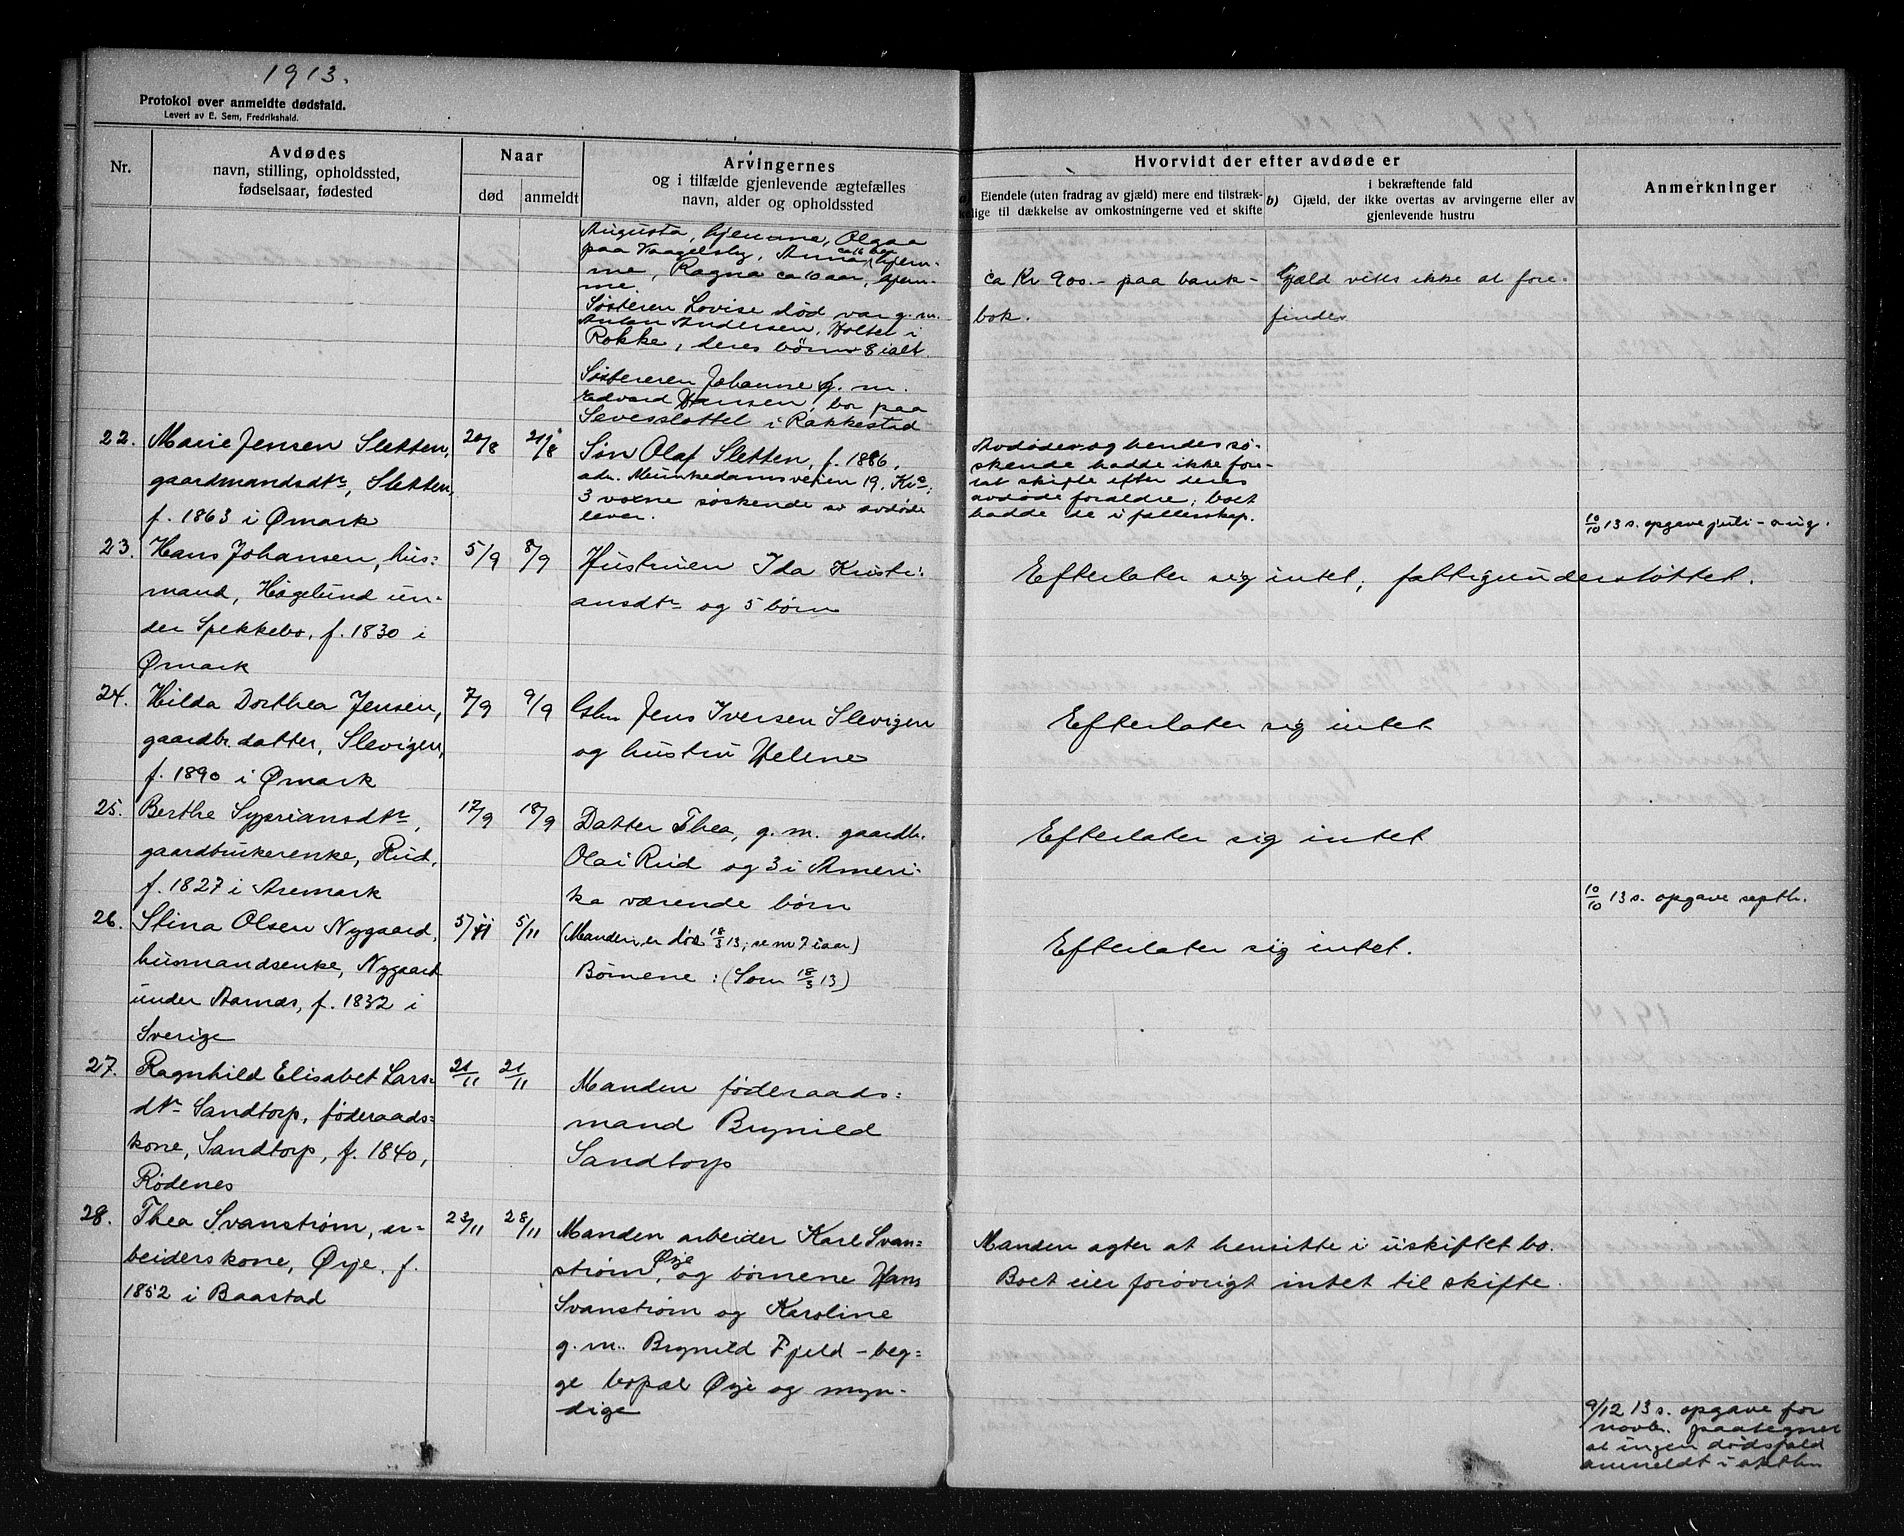 1913.
Protokol over anmeldte dødsfald.
Levert av E. Sem, Fredrikshald.
Nr.
Avdødes
navn, stilling, opholdssted,
fødselsaar, fødested
Naar
død
anmeldt
Arvingernes
og i tilfælde gjenlevende ægtefælles
navn, alder og opholdssted
Hvorvidt der efter avdøde er
Eiendele (uten fradrag av gjæld) mere end tilstræk-
kelige til dækkelse av omkostningerne ved et skifte
i bekræftende fald
b) Gjæld, der ikke overtas av arvingerne eller av
gjenlevende hustru
Anmerkninger
Augusta, hjemme, Olga
paa Vaagelsby, Anna, hjem-
me, Ragna ca 10 aar, hjem-
me.
Søsteren Lovise død var g. m.
Anton Andersen, Holtet i
Rokke, deres børn 8 ialt.
Søsteren Johanne g. m.
Edvard Hansen, bor paa
i Rakkestad
ca Kr 900.- paa bank-
bok.
Gjæld vites ikke at fore-
findes
22.
Marie Jensen Sletten,
gaardmandsdtr, Sletten,
f. 1863 i Ømark
20/8
21/8
Søn Olaf Sletten, f. 1886,
adr. Munkedamsveien 19, Kra;
3 voxne søskende av avdøde
lever.
Avdøde og hendes sø-
skende hadde ikke fore-
tat skifte efter deres
avdøde foræld​re; boet
hadde de i fællesskap.
10/10 13 s. opgave juli - aug.
23.
Hans Johansen, hus-
mand, Høgelund un-
der Spekkebo, f. 1830 i
Ømark
5/9
8/9
Hustruen Ida Kristi-
ansdtr og 5 børn
Efterlater sig intet; fattigunderstøttet.
24.
Hilda Dorthea Jensen,
gaardbr.datter, Slevigen,
f. 1890 i Ømark
7/9
9/9
Gbr Jens Iversen Slevigen
og hustru Helene
Efterlater sig intet
25.
Berthe Sypriansdtr,
gaardbrukerenke, Rud,
f. 1827 i Aremark
17/9
18/9
Datter Thea, g. m. gaardbr.
Ola i Rud og 3 i Ameri-
ka værende børn
Efterlater sig intet
10/10 13 s. opgave septbr.
26.
Stina Olsen Nygaard,
husmandsenke, Nygaard
under Aarnæs, f. 1832 i
Sverige
5/11
5/11
(Manden er død 18/3 13; se nr 7 iaar)
Børnene: (Som 18/3 13)
Efterlater sig intet.
27.
Ragnhild Elisabet Lars-
dtr Sandtorp, føderaads-
kone, Sandtorp, f. 1840,
Rødenes
21/11
21/11
Manden føderaads-
mand Brynild
Sandtorp
28.
Thea Svanstrøm, ar-
beiderskone, Ørje. f.
1852 i Baastad
23/11
28/11
Manden arbeider Karl Svan-
strøm, Ørje og børnene Hans
Svanstrøm og Karoline
g. m. Brynild Fjeld - beg-
ge bopæl Ørje og myn-
dige
Manden agter at hensitte i uskiftet bo.
Boet eier forøvrigt intet til skifte.
9/12 13 s. opgave for
novbr. paategnet
at ingen dødsfald
anmeldt i oktbr